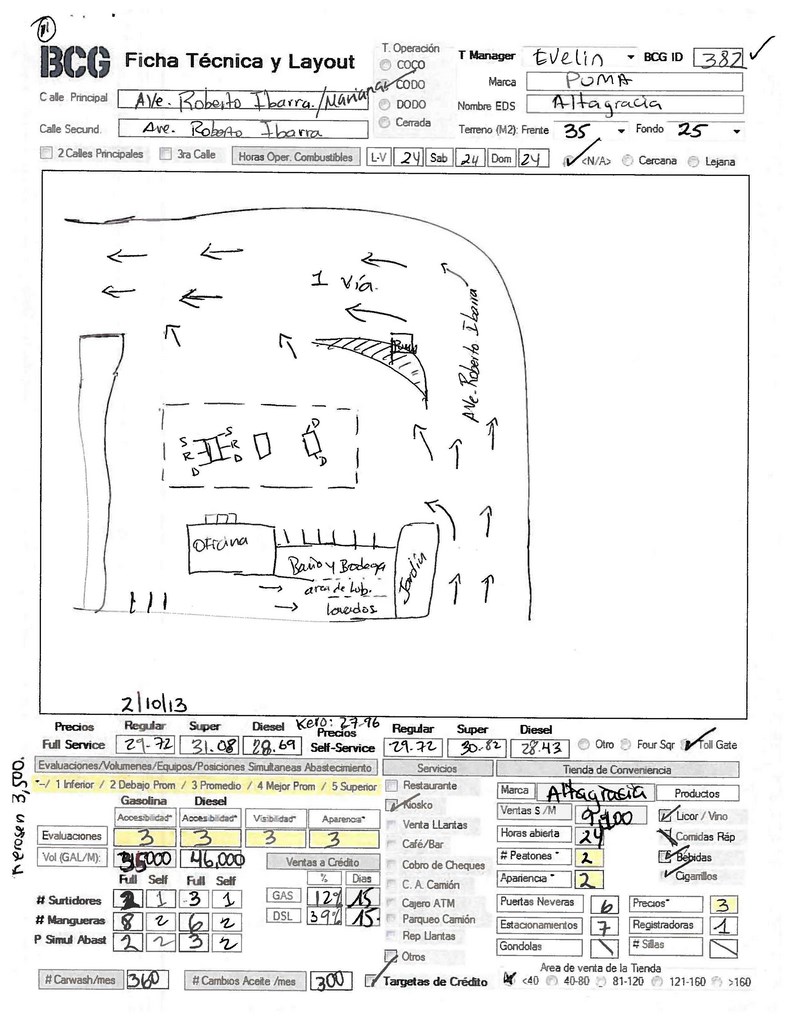 11
BCG Ficha Técnica y Layout
T. Operación
COCO
CODO
DODO
Cerrada
T Manager Evelin BCG ID 382
Marca PUMA
Nombre EDS Altagracia
Terreno (M2): Frente 35 Fondo 25
Calle Principal Ave. Roberto Ibarra./Mañanas
Calle Secund. Ave. Roberto Ibarra
2 Calles Principales 3ra Calle Horas Oper. Combustibles L-V 24 Sab 24 Dom 24 <N/A> Cercana Lejana
1 vía.
Ave. Roberto Ibarra
S S
R R
D D
D
D
Oficina
Baño y Bodega
area de Lub.
lavados
Jardín
2/10/13
Precios Regular Super Diesel Kero: 27-96
Full Service 29-72 31.08 28.69
Precios Regular Super Diesel
Self-Service 29.72 30-82 28.43 Otro Four Sqr Toll Gate
Kerosen 3,500.
Evaluaciones/Volumenes/Equipos/Posiciones Simultaneas Abastecimiento
*-/ 1 Inferior / 2 Debajo Prom / 3 Promedio / 4 Mejor Prom / 5 Superior
Gasolina Diesel
Accesibilidad* Accesibilidad* Visibilidad* Aparencia*
Evaluaciones 3 3 3 3
Vol (GAL/M): 35000 46,000
Full Self Full Self
# Surtidores 2 1 3 1
# Mangueras 8 2 6 2
P Simul Abast 2 2 3 2
Ventas a Crédito
% Dias
GAS 12% 15
DSL 39% 15.
# Carwash/mes 360 # Cambios Aceite /mes 300
Servicios
Restaurante
Kiosko
Venta LLantas
Café/Bar
Cobro de Cheques
C. A. Camión
Cajero ATM
Parqueo Camión
Rep Llantas
Otros
Targetas de Crédito
Tienda de Conveniencia
Marca Altagracia
Ventas S /M 9,100
Horas abierta 24
# Peatones* 2
Apariencia* 2
Productos
Licor / Vino
Comidas Ráp
Bebidas
Cigarrillos
Puertas Neveras 6 Precios* 3
Estacionamientos 7 Registradoras 1
Gondolas \ # Sillas \
Area de venta de la Tienda
<40 40-80 81-120 121-160 >160